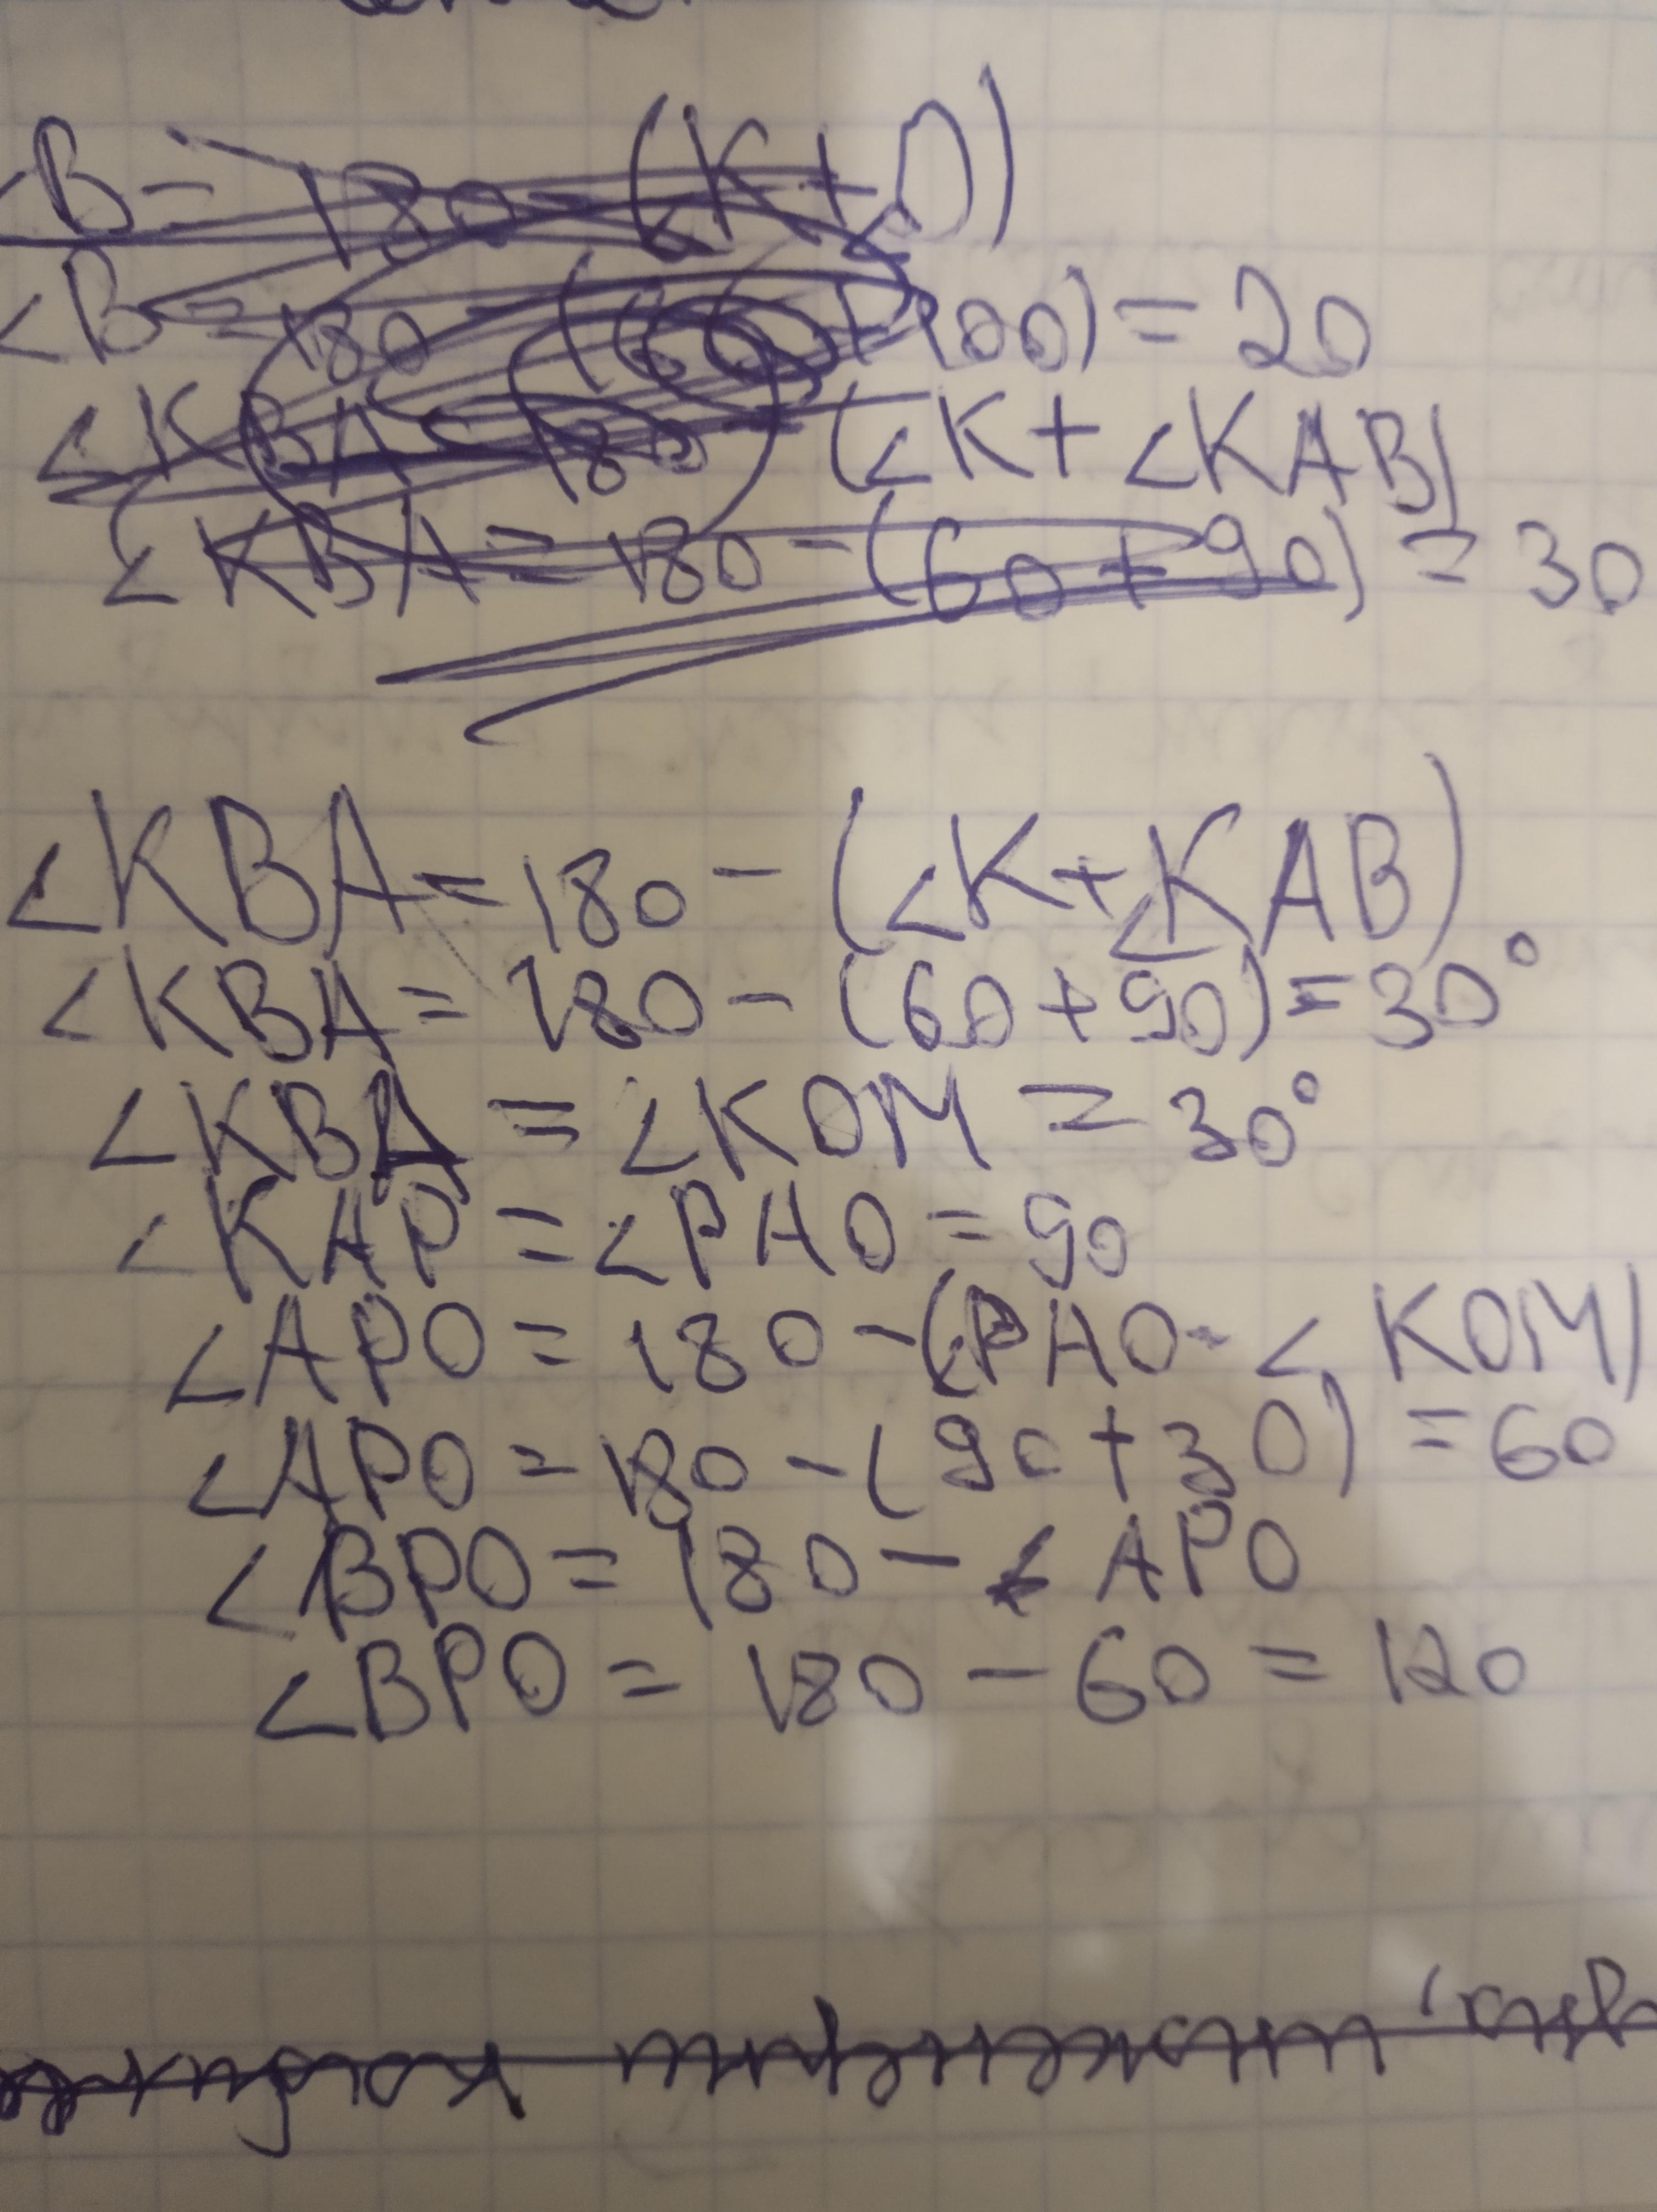 ∠B = 180 - (K+O)
∠B = 180 - (60+100) = 20
∠KBA = 180 - (∠K + ∠KAB)
∠KBA = 180 - (60+90) = 30
∠KBA = 180 - (∠K + ∠KAB)
∠KBA = 180 - (60+90) = 30°
∠KBA = ∠KOM = 30°
∠KAP = ∠PAO = 90
∠APO = 180 - (PAO - ∠KOM)
∠APO = 180 - (90+30) = 60
∠BPO = 180 - ∠APO
∠BPO = 180 - 60 = 120